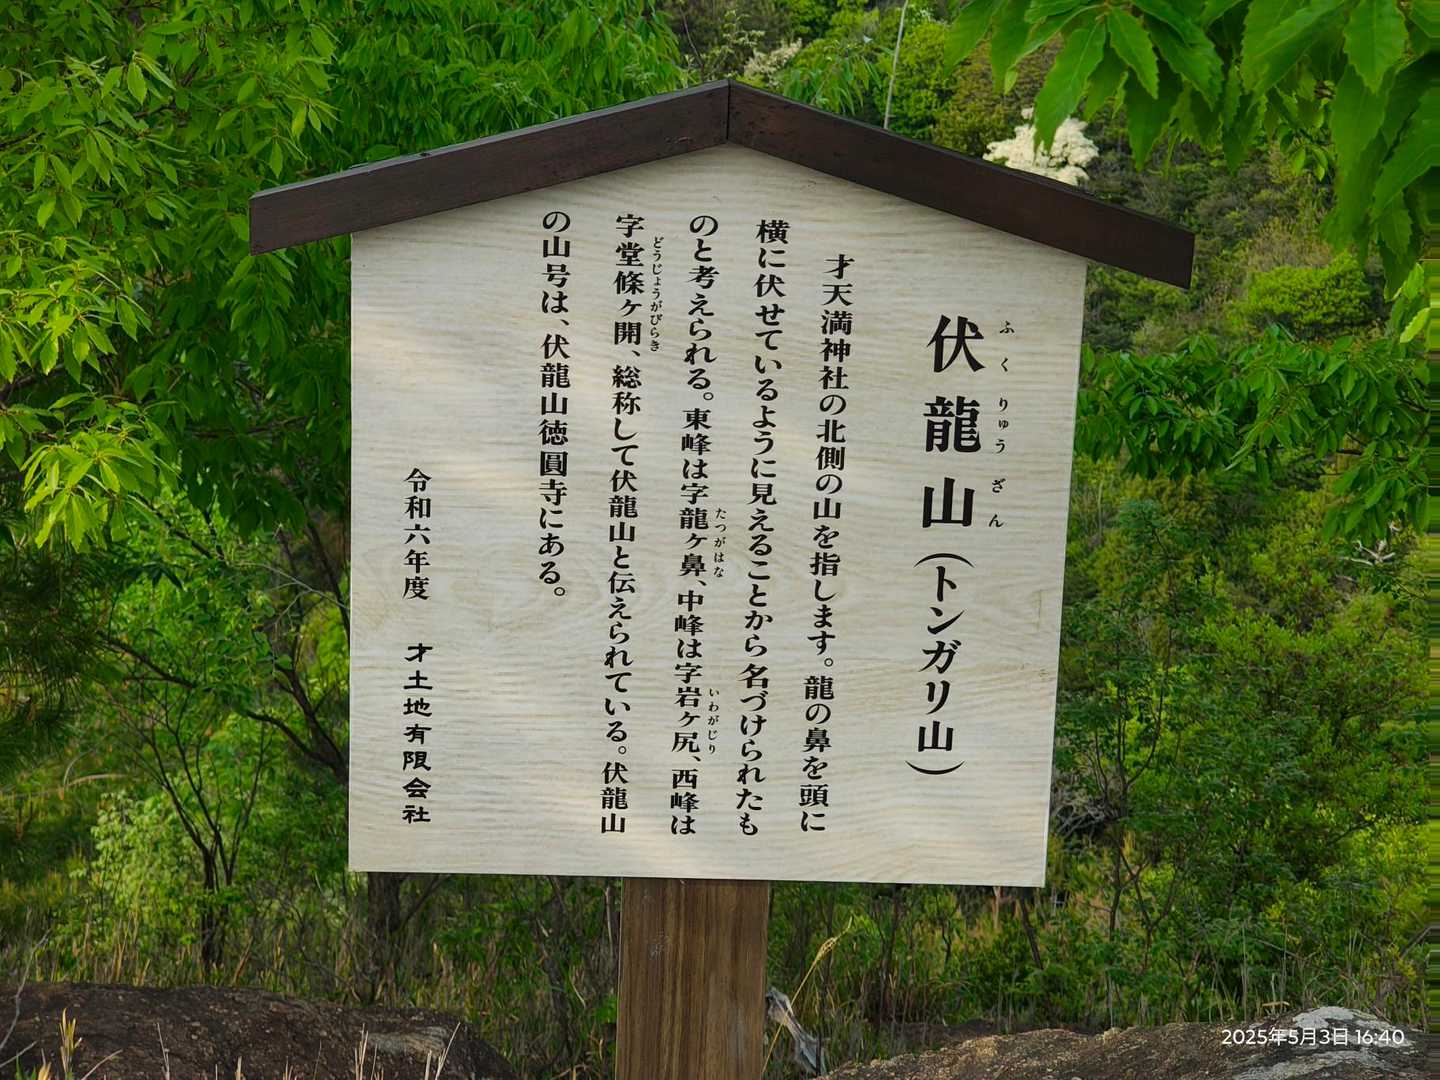 伏龍山（トンガリ山）
ふくりゅうざん
才天満神社の北側の山を指します。龍の鼻を頭に
横に伏せているように見えることから名づけられたも
のと考えられる。東峰は字龍ヶ鼻、中峰は字岩ヶ尻、西峰は
たつがはな
いわがじり
字堂條ヶ開、総称して伏龍山と伝えられている。伏龍山
どうじょうがびらき
の山号は、伏龍山徳圓寺にある。
令和六年度 才土地有限会社
2025年5月3日 16:40